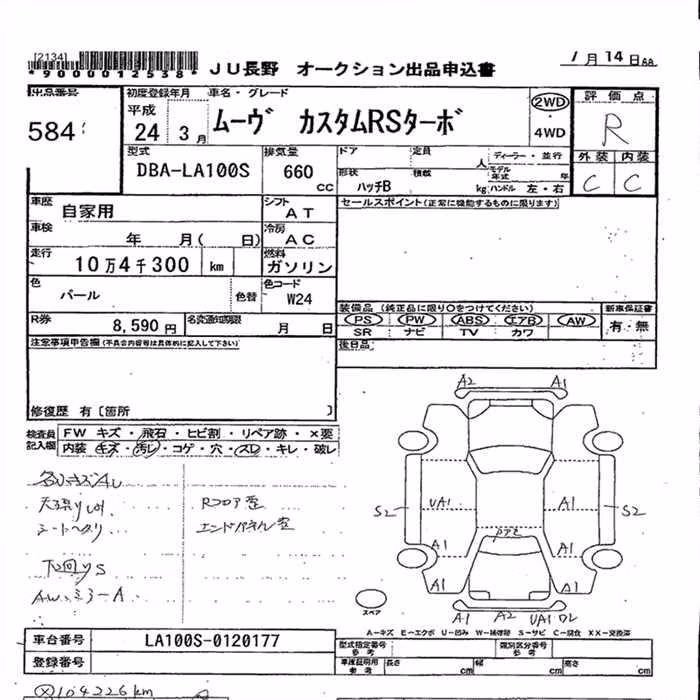 [2134]
*9000012538* JU長野 オークション出品申込書 1月14日
出品番号 初度登録年月 車名・グレード 評価点
584 平成 24 3月 ムーヴ カスタムRSターボ 2WD 4WD R
型式 排気量 ドア 定員 人 ディーラー・並行 外装 内装
DBA-LA100S 660cc 形状 ハッチB 積載 kg モデル年式 年 ハンドル 左・右 C C
車歴 自家用 シフト AT セールスポイント(正常に機能するものに限ります)
車検 年 月( 日) 冷房 AC
走行 10万4千300 km 燃料 ガソリン
色 パール 色替 色コード W24
装備品 (純正品に限り○をつけてください) 新車保証書
R券 8,590円 名変通知期限 月 日 PS PW ABS エアB AW 有・無
SR ナビ TV カワ
注意事項申告欄(不具合内容等は具体的に記入して下さい) 後日品
修復歴 有〔箇所 〕
検査員記入欄 FW キズ・飛石・ヒビ割・リペア跡・×要
内装・キズ・汚レ・コゲ・穴・スレ・キレ・破レ
シートヘタリ
Rフロア歪
エンドパネル歪
下回りS
A2 A1
S2 UA1 A1 S2
A1 A1
A1 A1
A1 A2 UA1
スペア
A-キズ E-エクボ U-凹み W-補修跡 S-サビ C-腐食 XX-交換済
車台番号 LA100S-0120177 型式指定番号 参考 類別区分番号 参考
登録番号 車庫証明用 参考 長さ cm 幅 cm 高さ cm
104226km